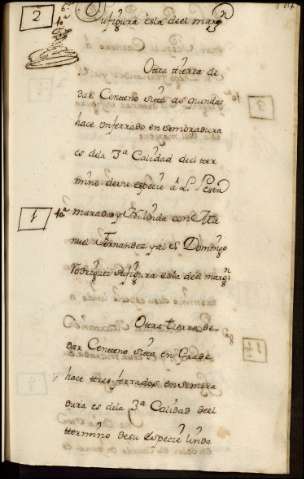 2
Su figura es la del marg.n
Otra tierra de
dar Centeno sita as quindas
hace un ferrado en sembradura
es dela 3.a Calidad del ter
mino de su especie á L.
1
marados y Cilinda con Ma
nuel Fernandez y al S. Domingo
Rodriguez su figura es la del marg.n
Otra tierra de
dar Centeno sita en Grade
hace tres ferrados en sembra
dura es dela 3.a Calidad del
termino de su Especie linda